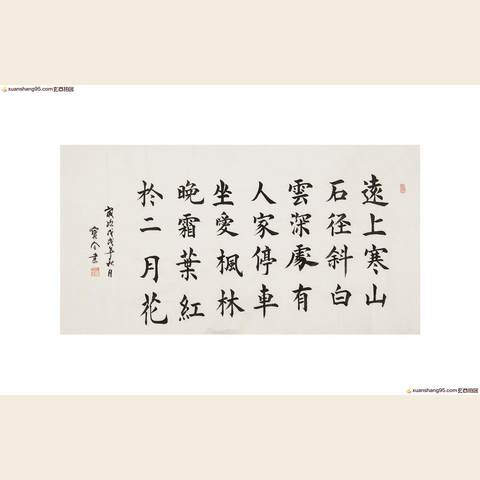 xuanshang95.com玄西拍回
遠上寒山
石径斜白
雲深處有
人家停車
坐愛楓林
晚霜葉紅
於二月花
戊戌年秋月
寶全書
xuanshang95.com玄西拍回